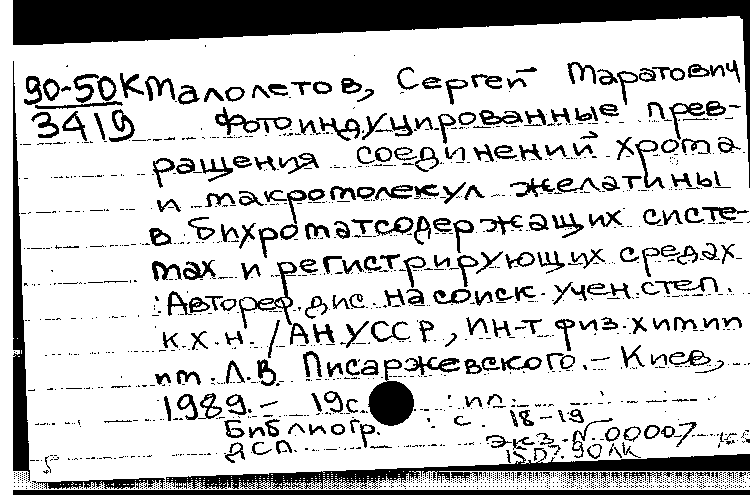 90-50К Малолетов, Сергей Маратович
3419 Фотоиндуцированные прев-
ращения соединений хрома
и макромолекул желатины
в бихроматсодержащих систе-
мах и регистрирующих средах
: Автореф. дис. на соиск. учен. степ.
к. х. н. / АН УССР, Ин-т физ. химии
им. Л. В. Писаржевского. – Киев,
1989. – 19 с. : ил.
Библиогр. : с. 18-19
ДСП. Экз. N 00007
15.07.90 ЛК